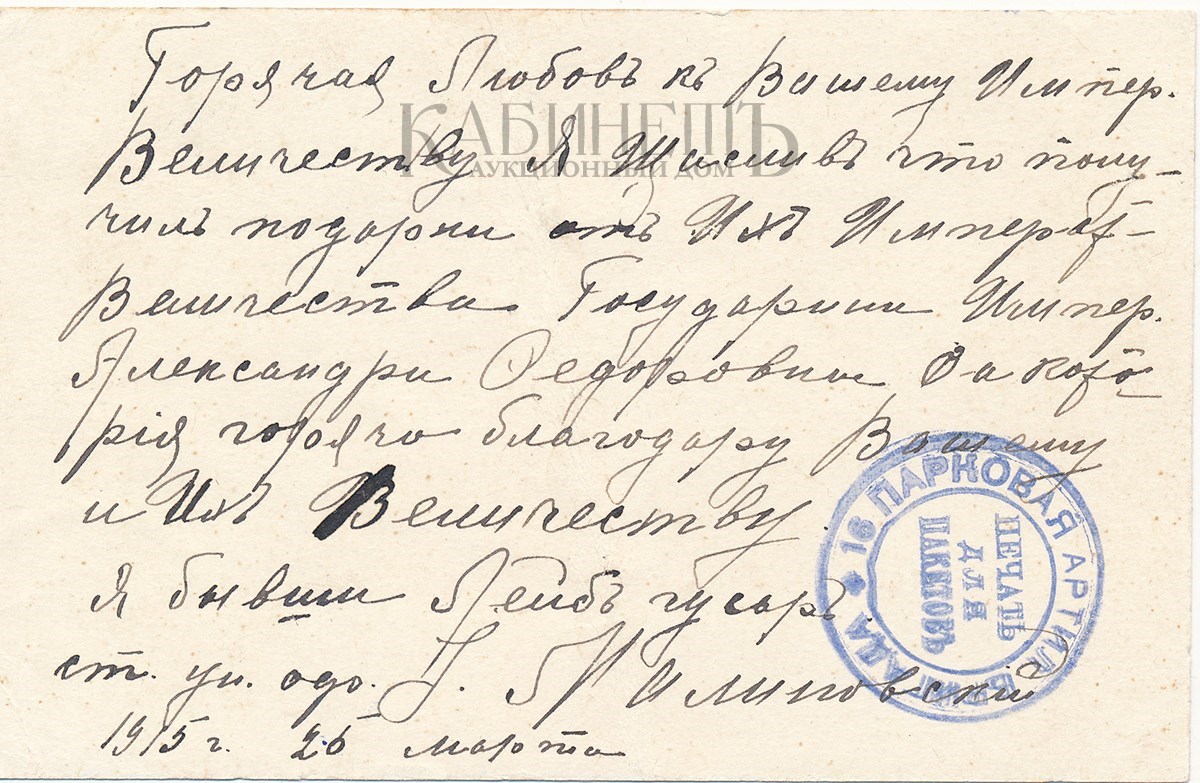 Горячая Любовъ къ Вашему Импер.
КАБИНЕТЪ
АУКЦИОННЫЙ ДОМ
Величеству Я Щасливъ что полу-
чилъ подарки отъ Ихъ Императ-
Величества Государини Импер.
Александри Федоровни За кото-
рія горячо благодару Вашему
и Ихъ Величеству.
Я бывши Лейбъ гусаръ.
ст. ун. офо. Г. Малиновскій
1915 г. 26 марта
16 ПАРКОВАЯ АРТИЛ БРИГАДА
ПЕЧАТЬ
ДЛЯ
ПАКЕТОВЪ